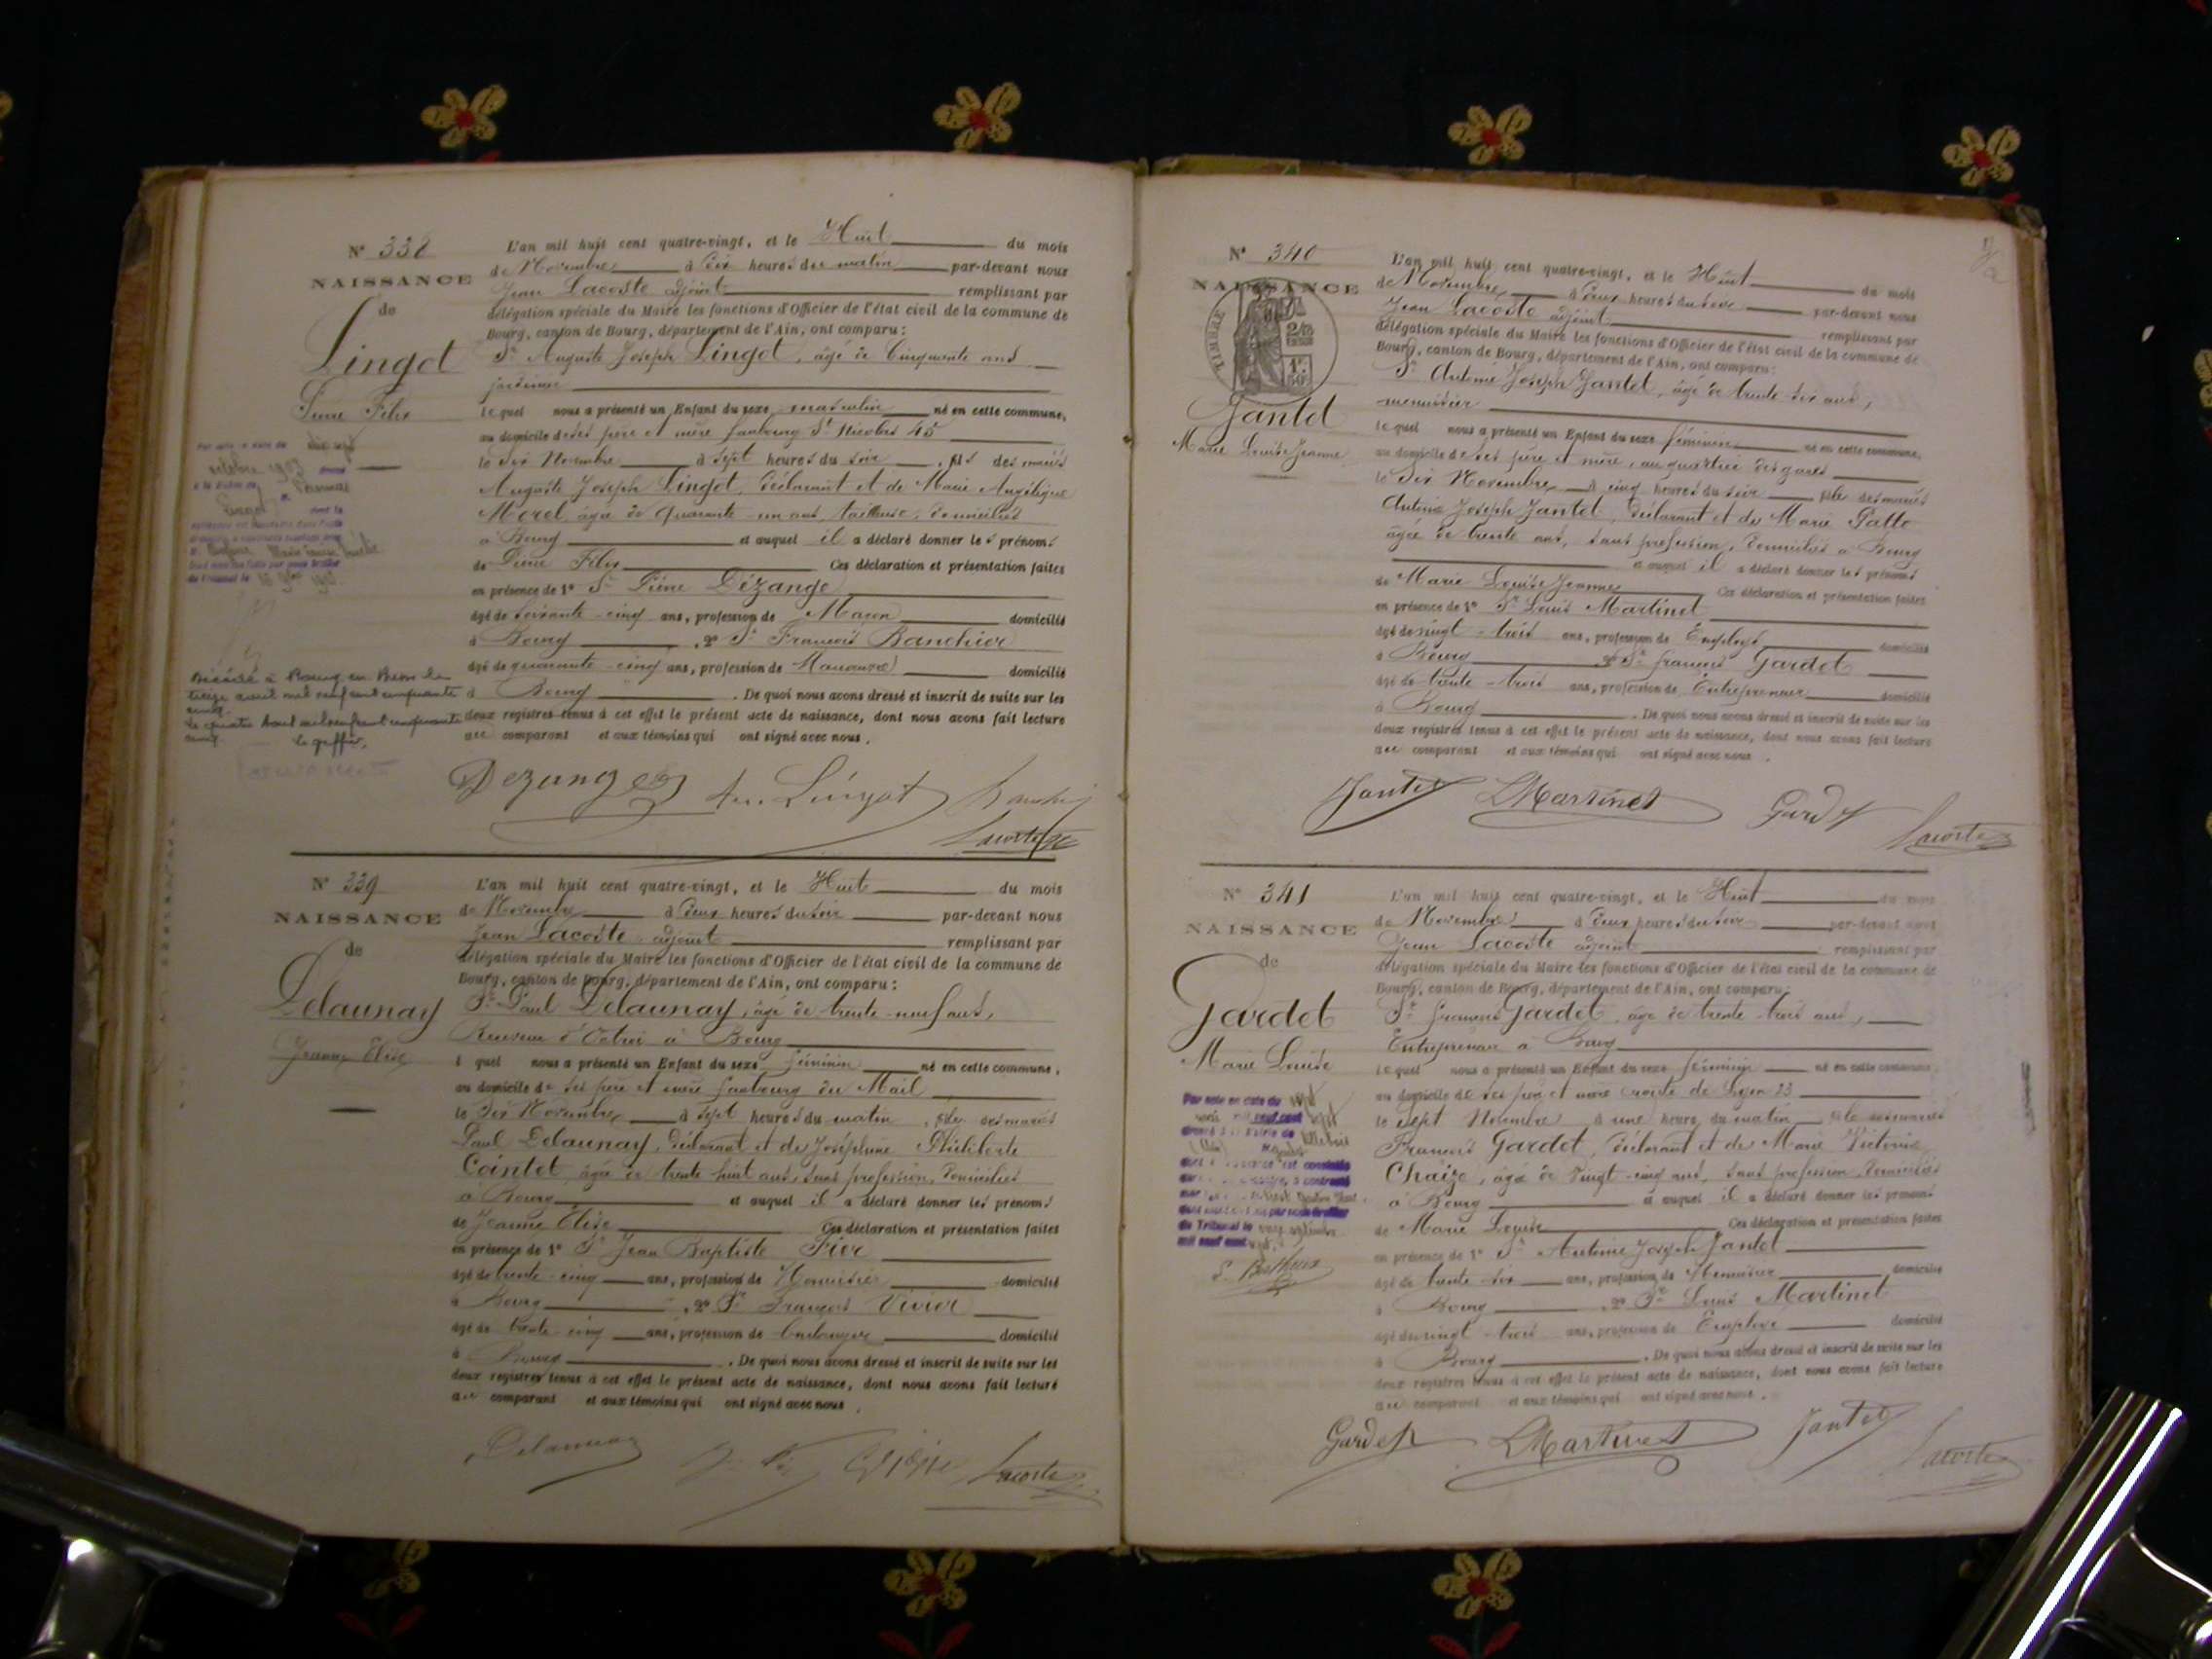 N° 338
NAISSANCE
de
Lingot
Pierre Félix
L'an mil huit cent quatre-vingt, et le Huit du mois
de Novembre à dix heures du matin par-devant nous
Jean Lacoste adjoint remplissant par
délégation spéciale du Maire les fonctions d'Officier de l'état civil de la commune de
Bourg, canton de Bourg, département de l'Ain, ont comparu :
Sr Auguste Joseph Lingot, âgé de Cinquante ans
lequel nous a présenté un Enfant du sexe masculin né en cette commune,
au domicile de ses père et mère faubourg St Nicolas 45
le Six Novembre à sept heures du soir, fils des mariés
Auguste Joseph Lingot, déclarant et de Marie Angélique
Morel, âgée de Quarante-un ans, tailleuse, domiciliés
à Bourg et auquel il a déclaré donner les prénoms
de Pierre Félix Ces déclaration et présentation faites
en présence de 1° Sr Pierre Dézange
âgé de soixante-cinq ans, profession de Maçon domicilié
à Bourg, 2° Sr François Banchier
âgé de quarante-cinq ans, profession de domicilié
à Bourg. De quoi nous avons dressé et inscrit de suite sur les
deux registres tenus à cet effet le présent acte de naissance, dont nous avons fait lecture
au comparant et aux témoins qui ont signé avec nous.
octobre 1903
Lingot
Décédé à Bourg en Bresse le
treize avril mil neuf cent cinquante
cinq.
Le quatre août mil neuf cent cinquante
cinq. Le greffier,
Lingot
Lacoste
N° 339
NAISSANCE
de
Delaunay
Jeanne Elise
L'an mil huit cent quatre-vingt, et le Huit du mois
de Novembre à deux heures du soir par-devant nous
Jean Lacoste adjoint remplissant par
délégation spéciale du Maire les fonctions d'Officier de l'état civil de la commune de
Bourg, canton de Bourg, département de l'Ain, ont comparu :
Sr Paul Delaunay, âgé de trente-neuf ans,
Receveur d'Octroi à Bourg
lequel nous a présenté un Enfant du sexe féminin né en cette commune,
au domicile de ses père et mère faubourg du Mail
le Six Novembre à sept heures du matin, fille des mariés
Paul Delaunay, déclarant et de Joséphine Philiberte
Cointet, âgée de trente huit ans, sans profession, domiciliés
à Bourg et auquel il a déclaré donner les prénoms
de Jeanne Elise Ces déclaration et présentation faites
en présence de 1° Sr Jean Baptiste
âgé de trente-cinq ans, profession de Menuisier domicilié
à Bourg, 2° Sr François Vivier
âgé de trente-cinq ans, profession de domicilié
à Bourg. De quoi nous avons dressé et inscrit de suite sur les
deux registres tenus à cet effet le présent acte de naissance, dont nous avons fait lecture
au comparant et aux témoins qui ont signé avec nous.
Delaunay
Lacoste
N° 340
NAISSANCE
TIMBRE
Jantet
Marie Louise Jeanne
L'an mil huit cent quatre-vingt, et le Huit du mois
de Novembre à deux heures du soir par-devant nous
Jean Lacoste adjoint remplissant par
délégation spéciale du Maire les fonctions d'Officier de l'état civil de la commune de
Bourg, canton de Bourg, département de l'Ain, ont comparu :
Sr Antoine Joseph Jantet, âgé de trente-six ans,
menuisier
lequel nous a présenté un Enfant du sexe féminin né en cette commune,
au domicile de ses père et mère, au quartier des gares
le Six Novembre à cinq heures du soir fille des mariés
Antoine Joseph Jantet, déclarant et de Marie Patte
âgée de trente ans, sans profession, domiciliés à Bourg
et auquel il a déclaré donner les prénoms
de Marie Louise Jeanne Ces déclaration et présentation faites
en présence de 1° Sr Louis Martinet
âgé de vingt-trois ans, profession de Employé domicilié
à Bourg 2° Sr François Gardet
âgé de trente-trois ans, profession de Entrepreneur domicilié
à Bourg. De quoi nous avons dressé et inscrit de suite sur les
deux registres tenus à cet effet le présent acte de naissance, dont nous avons fait lecture
au comparant et aux témoins qui ont signé avec nous.
Jantet LMartinet Gardet
Lacoste
N° 341
NAISSANCE
de
Gardet
Marie Louise
L'an mil huit cent quatre-vingt, et le Huit du mois
de Novembre à deux heures du soir par-devant nous
Jean Lacoste adjoint remplissant par
délégation spéciale du Maire les fonctions d'Officier de l'état civil de la commune de
Bourg, canton de Bourg, département de l'Ain, ont comparu :
Sr François Gardet, âgé de trente-trois ans,
Entrepreneur à Bourg
lequel nous a présenté un Enfant du sexe féminin né en cette commune,
au domicile de ses père et mère route de Lyon 23
le Sept Novembre à une heure du matin fille des mariés
François Gardet, déclarant et de Marie Victorine
Chaize, âgée de Vingt-cinq ans, sans profession domiciliés
à Bourg et auquel il a déclaré donner les prénoms
de Marie Louise Ces déclaration et présentation faites
en présence de 1° Sr Antoine Joseph Jantet
âgé de trente-six ans, profession de Menuisier domicilié
à Bourg, 2° Sr Louis Martinet
âgé de vingt-trois ans, profession de Employé domicilié
à Bourg. De quoi nous avons dressé et inscrit de suite sur les
deux registres tenus à cet effet le présent acte de naissance, dont nous avons fait lecture
au comparant et aux témoins qui ont signé avec nous.
Par acte en date du sept
du Tribunal le onze septembre
mil neuf cent sept
Gardet LMartinet Jantet
Lacoste